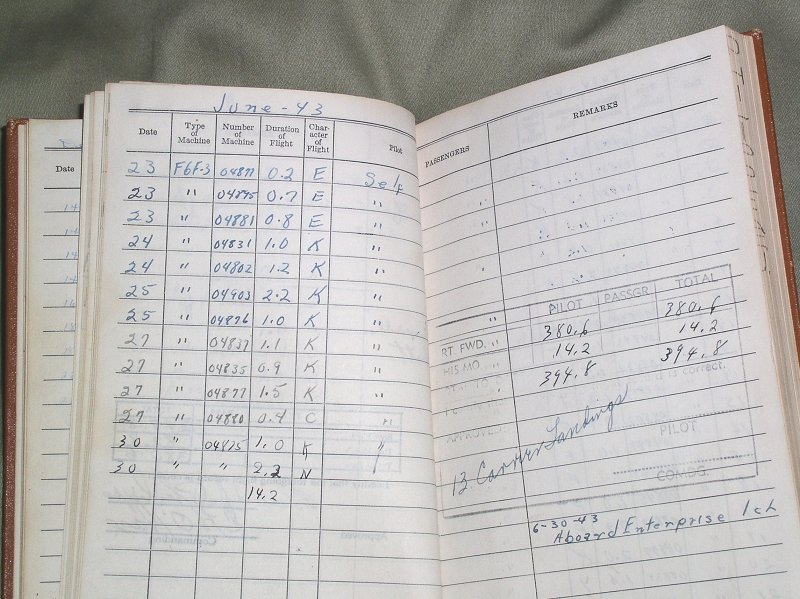 June - 43
Date Type of Machine Number of Machine Duration of Flight Character of Flight Pilot
23 F6F-3 04877 0.2 E Self
23 " 04895 0.7 E "
23 " 04881 0.8 E "
24 " 04831 1.0 K "
24 " 04802 1.2 K "
25 " 04903 2.2 K "
25 " 04876 1.0 K "
27 " 04837 1.1 K "
27 " 04835 0.9 K "
27 " 04877 1.5 K "
27 " 04880 0.4 C "
30 " 04875 1.0 K "
30 " " 2.2 N
14.2
Date
PASSENGERS REMARKS
PILOT PASSGR TOTAL
RT. FWD. 380.6 380.6
HIS MO. 14.2 14.2
394.8 394.8
is correct.
APPROVED:
PILOT
13 Carrier Landings
COM'DG.
6-30-43
Aboard Enterprise